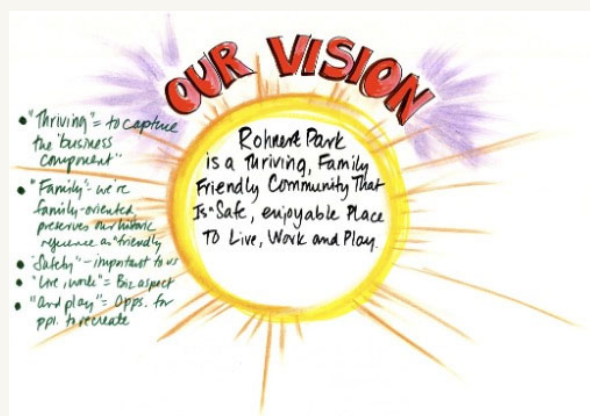 OUR VISION
Rohnert Park
is a Thriving, Family
Friendly Community That
Is Safe, enjoyable Place
To Live, Work and Play.
• "Thriving" = to capture
the "business
component"
• "Family" - we're
family-oriented
preserves our historic
reference as "friendly
• "Safety" - important to us
• "Live, work" = Biz aspect
• "and play" = Opps. for
ppl. to recreate